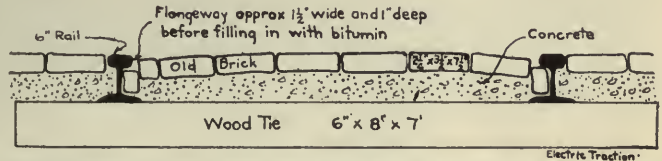 Flangeway approx 1½" wide and 1" deep
before filling in with bitumin
6" Rail
Concrete
Old Brick 2¼" x 3¾" x 7½"
Wood Tie 6" x 8" x 7'
Electric Traction.